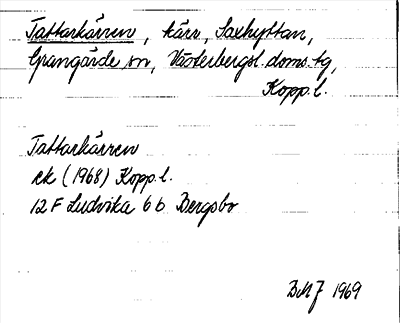 Tattarkärren, kärr, Saxhyttan,
Grangärde sn, Västerbergsl. doms. tg,
Kopp. l.
Tattarkärren
ek (1968) Kopp. l.
12 F Ludvika 6 b Bergsbo
BMJ 1969